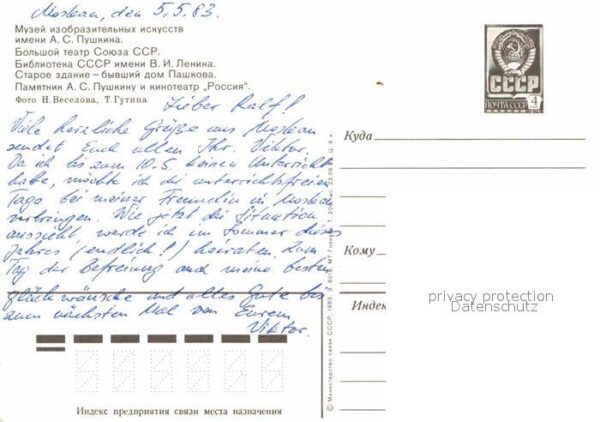 Moskau, den 5.5.83.
Музей изобразительных искусств
имени А. С. Пушкина.
Большой театр Союза ССР.
Библиотека СССР имени В. И. Ленина.
Старое здание – бывший дом Пашкова.
Памятник А. С. Пушкину и кинотеатр „Россия".
Фото Н. Веселова, Т. Гутина
Lieber Ralf!
Viele herzliche Grüße aus Moskau
sendet Euch allen Ihr Viktor.
Da ich bis zum 10.5. keinen Unterricht
habe, möchte ich die unterrichtsfreien
Tage bei meiner Freundin in Moskau
verbringen. Wie jetzt die Situation
aussieht, werde ich im Sommer dieses
Jahres (endlich!) heiraten. Zum
Tag der Befreiung auch meine besten
Glückwünsche und alles Gute bis
zum nächsten Mal von Eurem
Viktor.
Индекс предприятия связи места назначения
© Министерство связи СССР. 1983.
СССР
ПОЧТА СССР
4
Куда
Кому
Индекс
privacy protection
Datenschutz